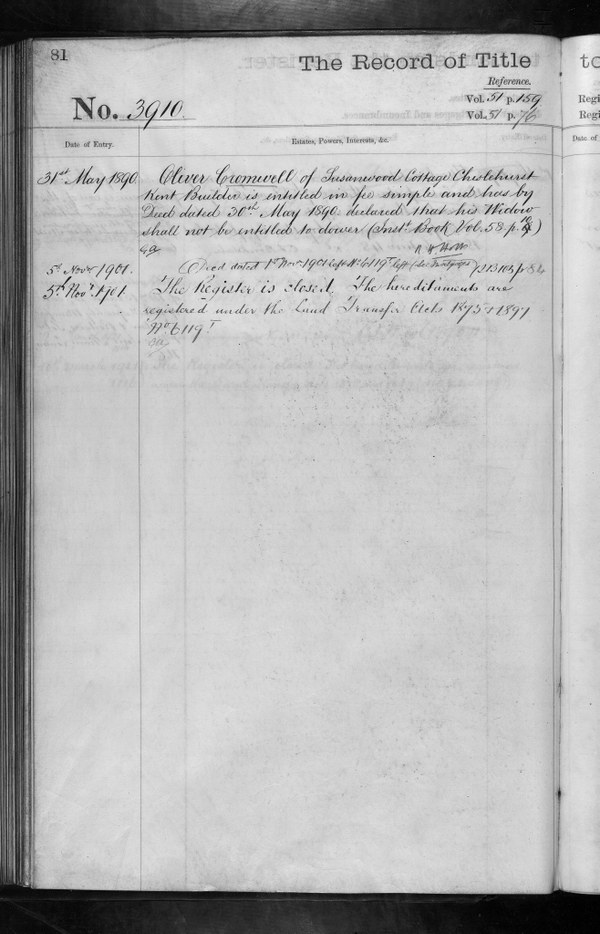 81
The Record of Title
Reference.
Vol. 51 p. 159
No. 3910.
Vol. 51 p. 76
Date of Entry.
Estates, Powers, Interests, &c.
31st May 1890.
Oliver Cromwell of Susanwood Cottage Chislehurst
Kent Builder is entitled in fee simple and has by
Deed dated 30th May 1890 declared that his Widow
shall not be entitled to dower (Inst. Book Vol. 58. p.
5th Novr 1901.
Deed dated 1st Novr 1901 left
5th Novr 1901.
The Register is closed. The hereditaments are
registered under the Land Transfer Acts 1875 & 1897
No 6119
to
Regi
Regi
Date of